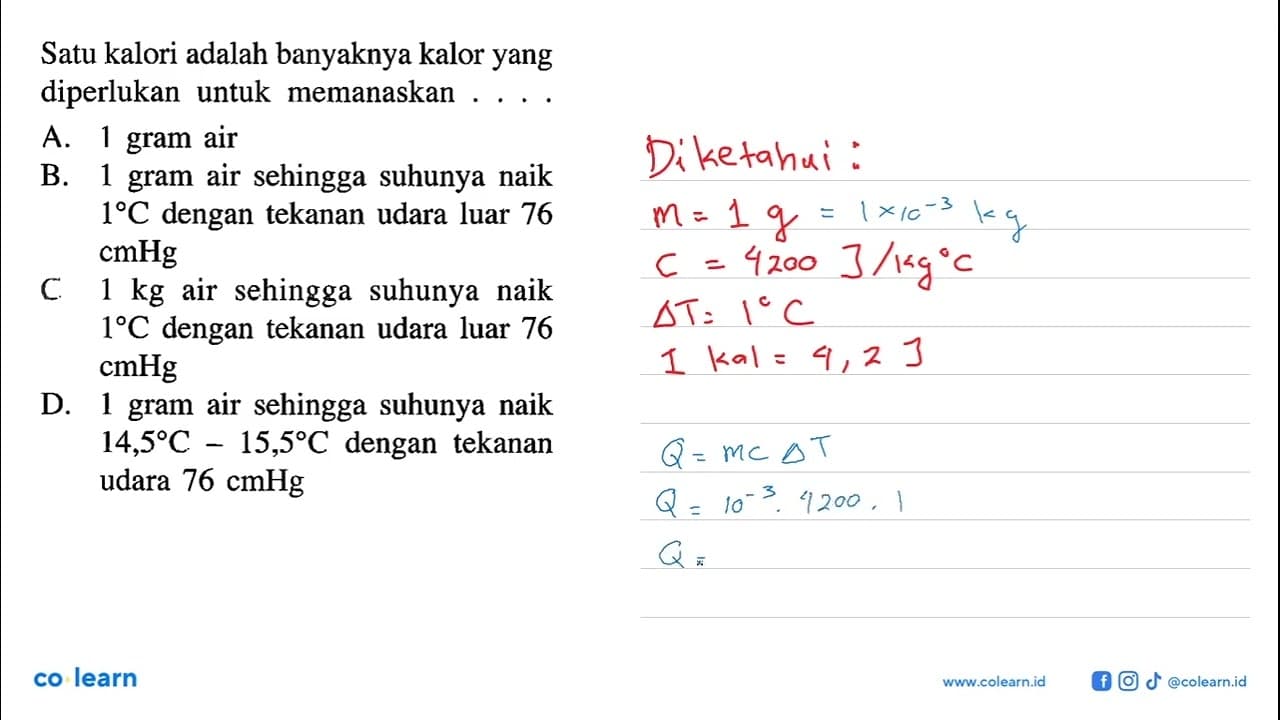 Satu kalori adalah banyaknya kalor yang
diperlukan untuk memanaskan . . . .
A. 1 gram air
B. 1 gram air sehingga suhunya naik
1°C dengan tekanan udara luar 76
cmHg
C 1 kg air sehingga suhunya naik
1°C dengan tekanan udara luar 76
cmHg
D. 1 gram air sehingga suhunya naik
14,5°C – 15,5°C dengan tekanan
udara 76 cmHg
Diketahui :
m = 1 g = 1 × 10⁻³ kg
C = 4200 J/kg°C
ΔT = 1°C
1 kal = 4,2 J
Q = mc ΔT
Q = 10⁻³ . 4200 . 1
Q =
co learn
www.colearn.id
@colearn.id